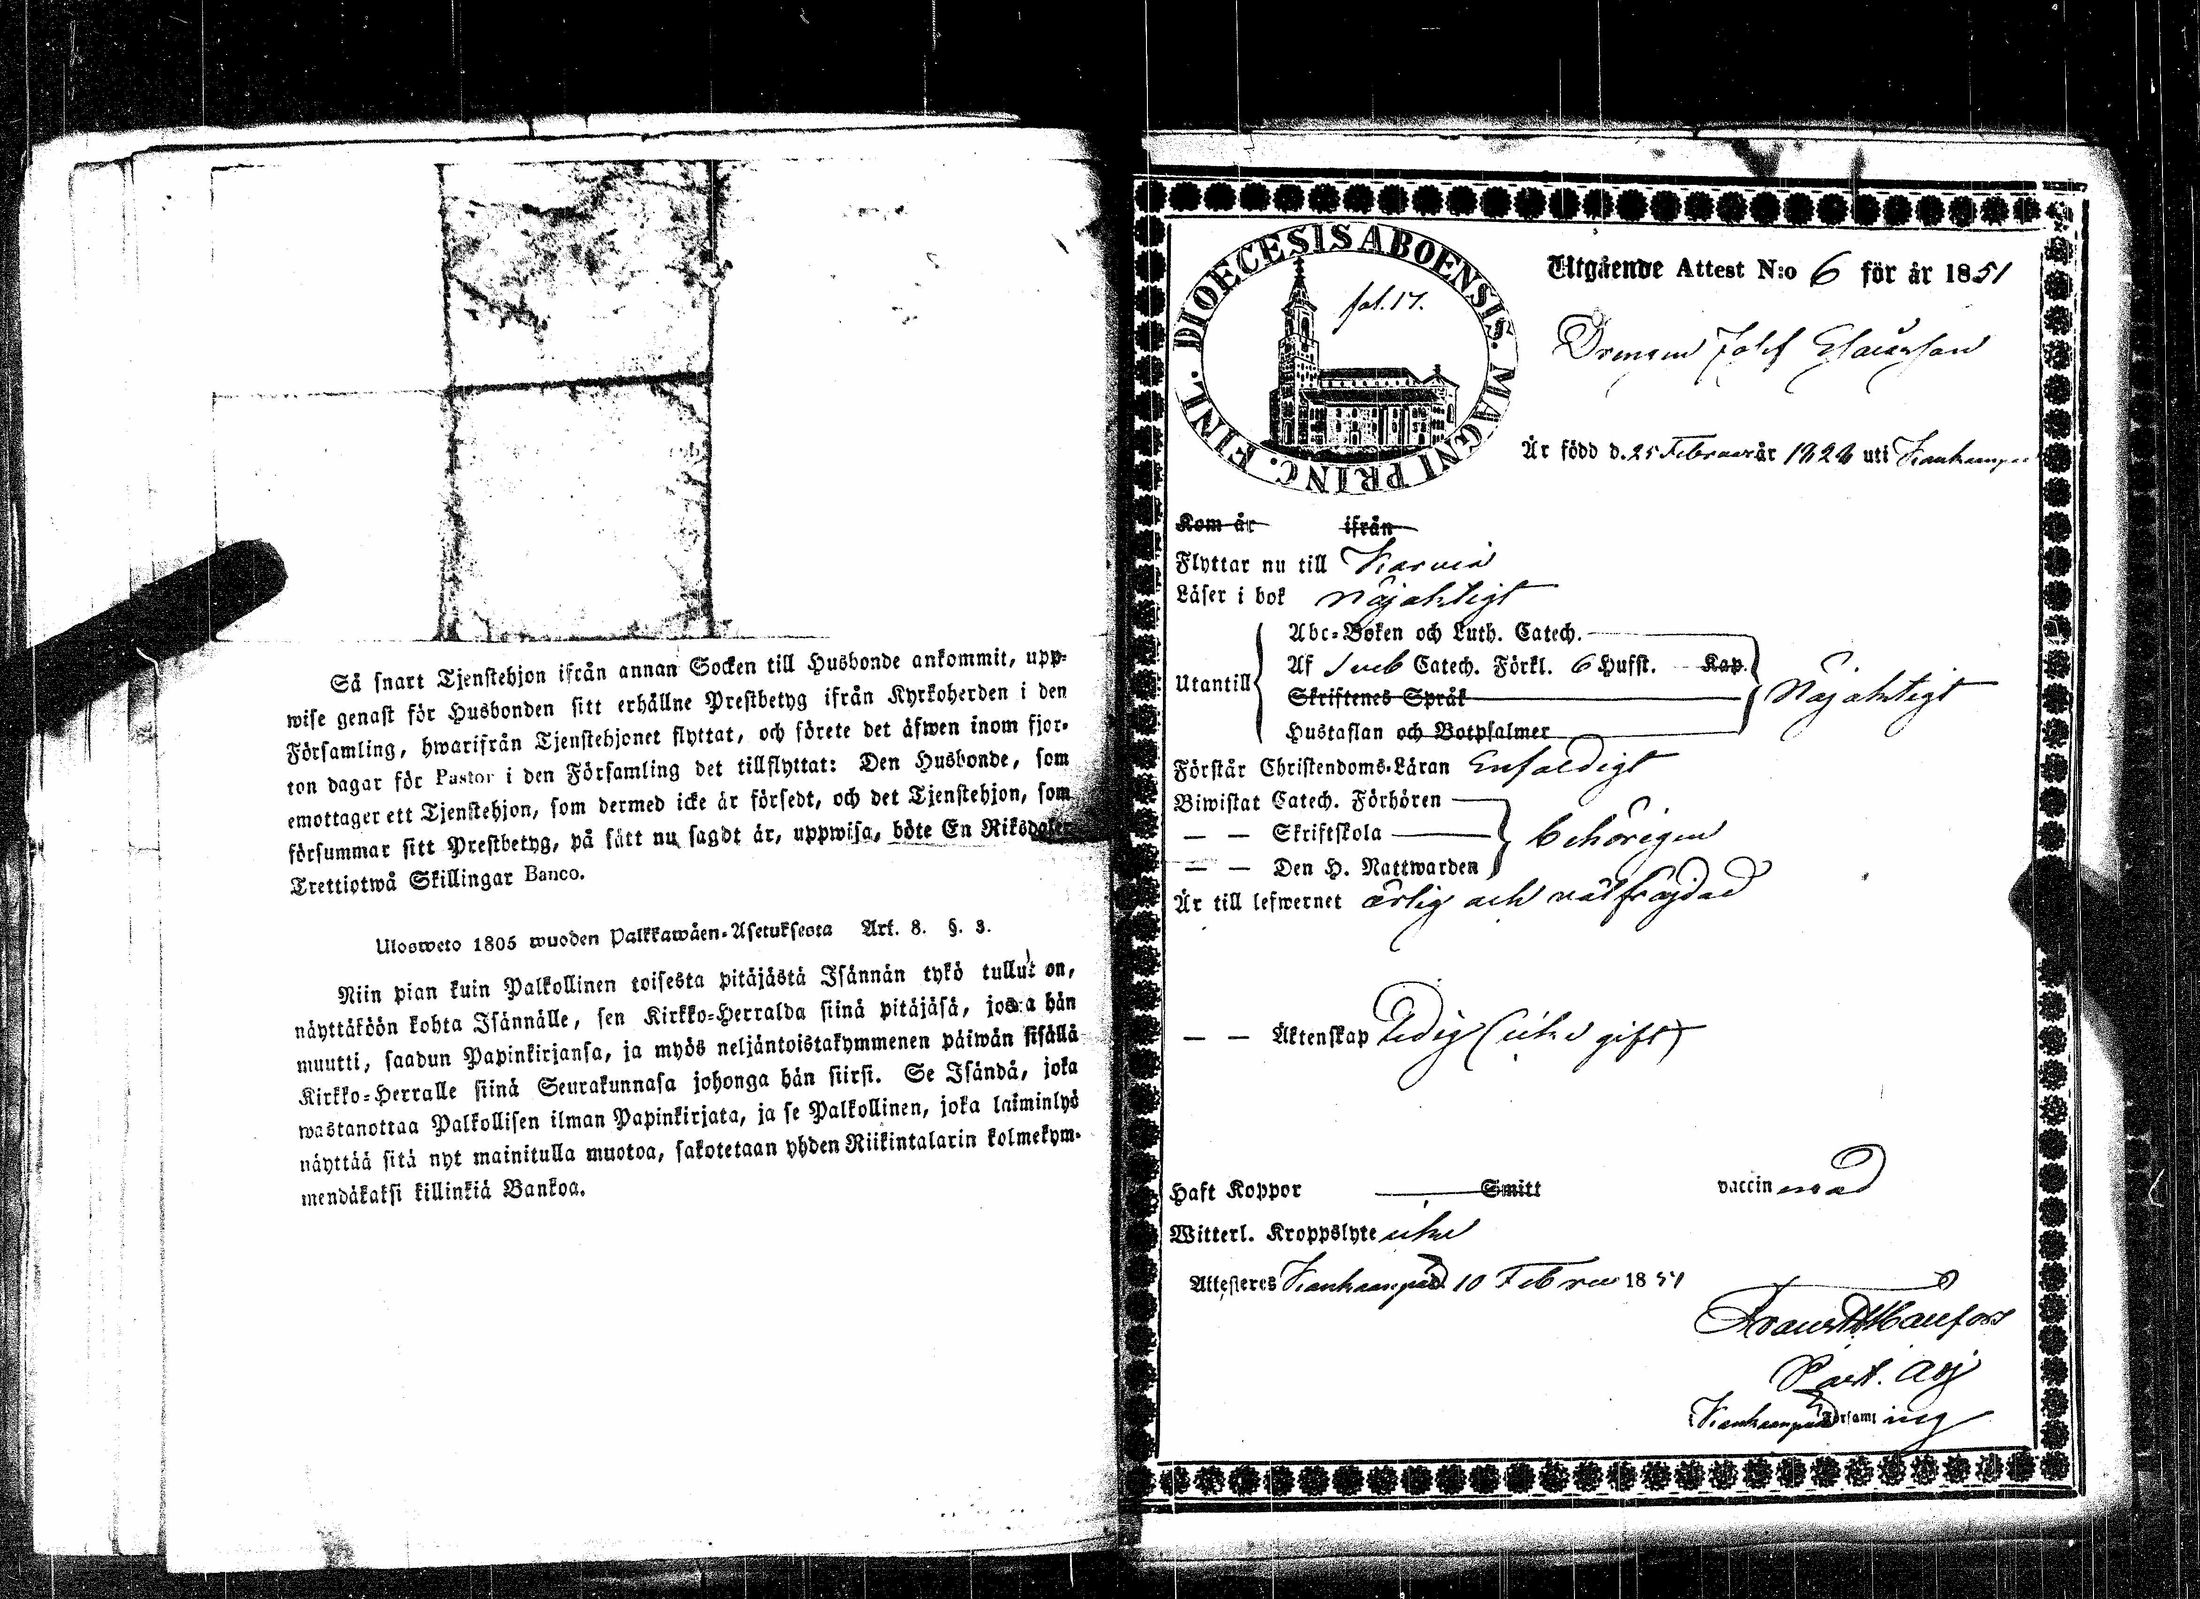 Så snart Tjenstehjon ifrån annan Socken till Husbonde ankommit, upp-
wise genast för Husbonden sitt erhållne Prestbetyg ifrån Kyrkoherden i den
Församling, hwarifrån Tjenstehjonet flyttat, och förete det äfwen inom fjor-
ton dagar för Pastor i den Församling det tillflyttat: Den Husbonde, som
emottager ett Tjenstehjon, som dermed icke är försedt, och det Tjenstehjon, som
försummar sitt Prestbetyg, på sätt nu sagdt är, uppwisa, böte En Riksdaler
Trettiotwå Skillingar Banco.
Ulosweto 1805 wuoden Palkkawäen-Asetuksesta Art. 8. §. 3.
Niin pian kuin Palkollinen toisesta pitäjästä Isännän tykö tullut on,
näyttäköön kohta Isännälle, sen Kirkko-Herralda siinä pitäjäsä, josta hän
muutti, saadun Papinkirjansa, ja myös neljäntoistakymmenen päiwän sisällä
Kirkko-Herralle siinä Seurakunnasa johonga hän siirsi. Se Isändä, joka
wastanottaa Palkollisen ilman Papinkirjata, ja se Palkollinen, joka laiminlyö
näyttää sitä nyt mainitulla muotoa, sakotetaan yhden Riikintalarin kolmekym-
mendäkaksi killinkiä Bankoa.
DIOECESIS ABOENSIS. MAGNI PRINC. FINL.
fol. 17.
Utgående Attest N:o 6 för år 1851
Drengen Josef Esaiasson
Är född d. 25 Februar år 1828 uti Kankaanpää
Kom år ifrån
Flyttar nu till Karvia
Läser i bok nöjaktigt
Abc-Boken och Luth. Catech.
Af Sveb Catech. Förkl. 6 Hufst. Kap.
Utantill
Skriftenes Språk
nöjaktigt
Hustaflan och Botpsalmer
Förstår Christendoms-Läran Enfaldigt
Biwistat Catech. Förhören
— — Skriftskola behörigen
— — Den H. Nattwarden
Är till lefwernet ärlig och välfräjdad
— — Äktenskap ledig (icke gift)
Haft Koppor Smitt vaccinerad
Witterl. Kroppslyte icke
Attesteres Kankaanpää d. 10 Februar 1851
Past. Adj
i Kankaanpää Församling